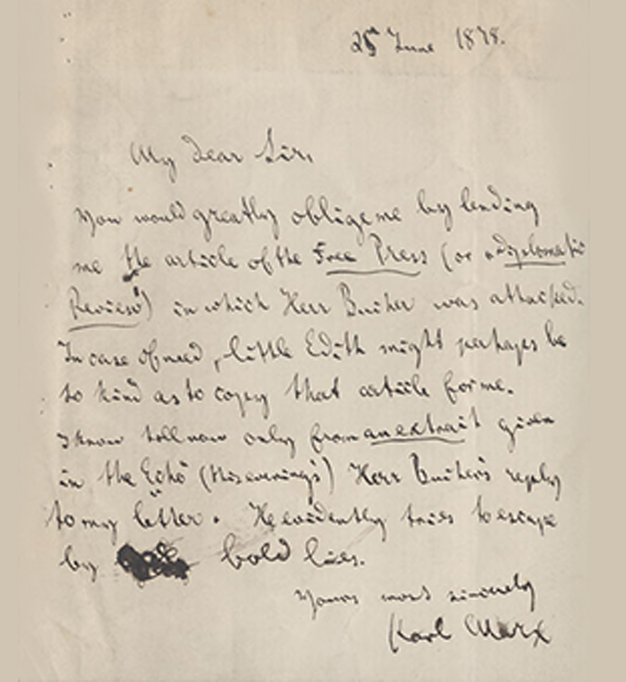 25 June 1878.
My dear Sir,
You would greatly oblige me by lending
me the article of the Free Press (or "Diplomatic
Review") in which Herr Bucher was attacked.
In case of need, little Edith might perhaps be
so kind as to copy that article for me.
I know till now only from an extract given
in the "Echo" (this evening's) Herr Bucher's reply
to my letter. He evidently tries to escape
by bold lies.
Yours most sincerely
Karl Marx